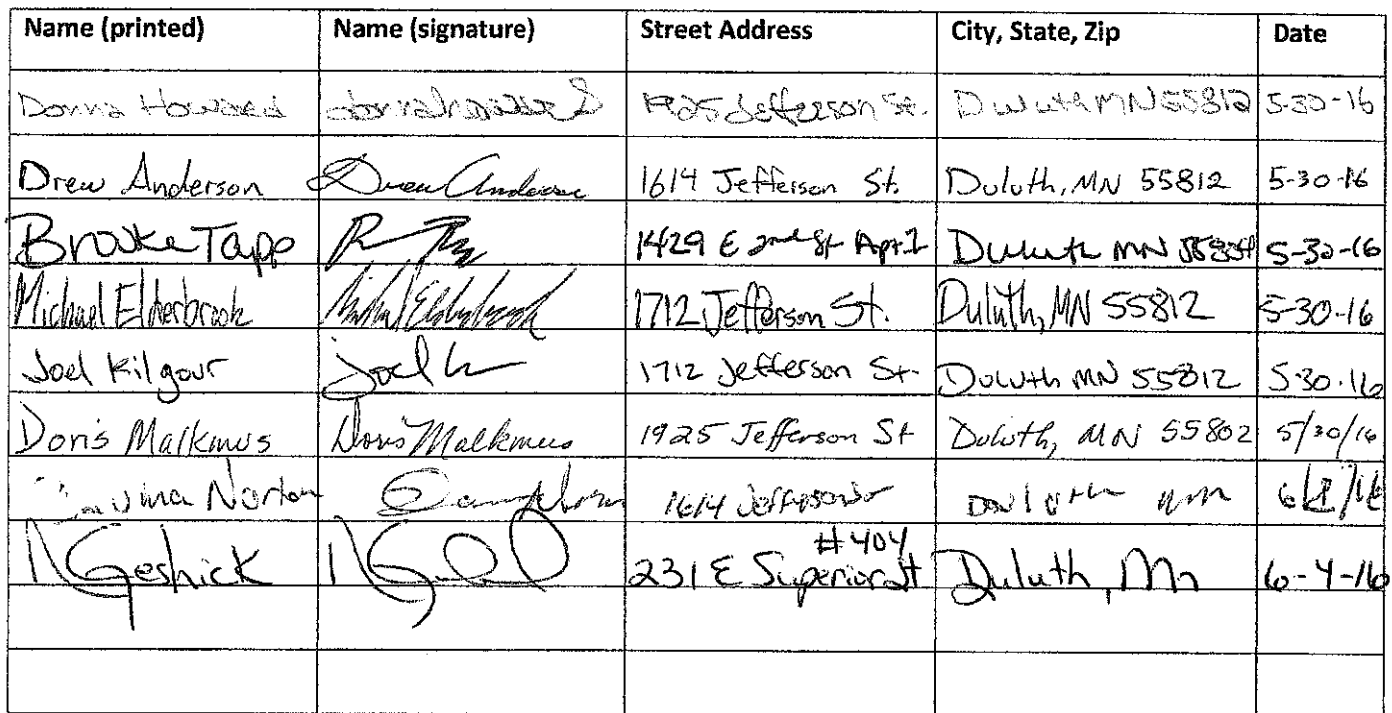 Name (printed) Name (signature) Street Address City, State, Zip Date
Donna Howard 1925 Jefferson St. Duluth MN 55812 5-30-16
Drew Anderson Drew Anderson 1614 Jefferson St. Duluth, MN 55812 5-30-16
Brooke Tapp 1429 E 2nd St Apt 1 Duluth MN 5-30-16
Michael Elderbrook Michael Elderbrook 1712 Jefferson St. Duluth, MN 55812 5-30-16
Joel Kilgour Joel 1712 Jefferson St. Duluth MN 55812 5.30.16
Doris Malkmus Doris Malkmus 1925 Jefferson St Duluth, MN 55802 5/30/16
Norton 1614 Jefferson Duluth mn
#404
Geshick 231 E Superior St Duluth, Mn 6-4-16